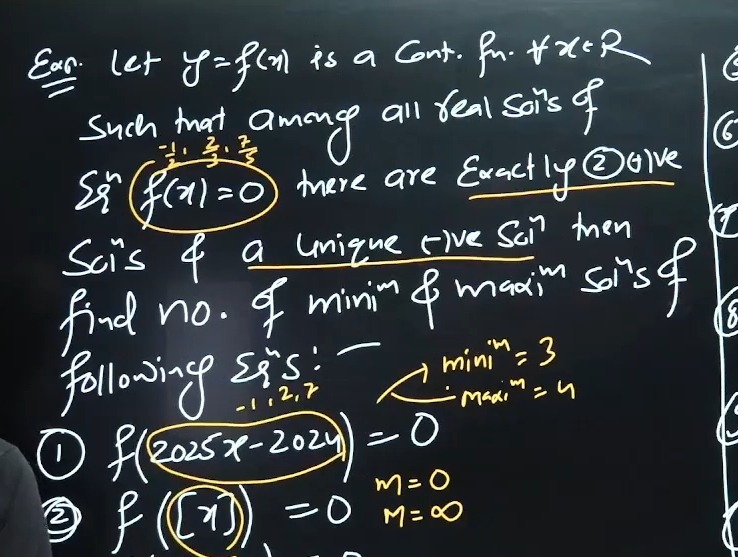 Exa. Let y=f(x) is a Cont. fn. ∀ x∈R
Such that among all real Solⁿs of
-1/2, 2/3, 7/5
Eqⁿ f(x)=0 there are Exactly ② (+)ve
Solⁿs & a unique (-)ve Solⁿ then
find no. of miniᵐ & maxiᵐ Solⁿs of
following Eqⁿs:-
miniᵐ = 3
maxiᵐ = 4
-1, 2, 7
① f(2025x-2024) = 0
② f([x]) = 0
m=0
M=∞